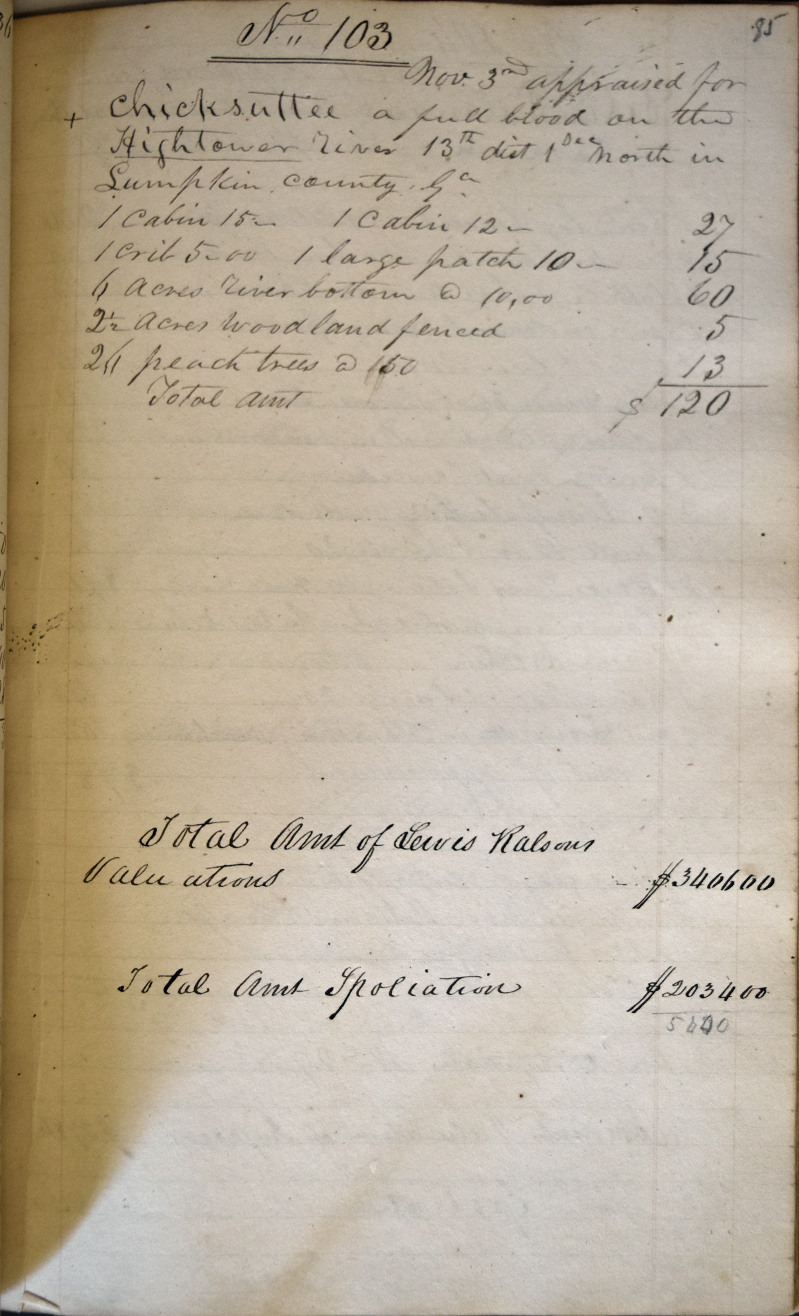 85
No 103
Nov. 3rd appraised for
+ chicksuttee a full blood on the
Hightower River 13th dist 1 Sec North in
Lumpkin county. Ga
1 Cabin 15– 1 Cabin 12– 27
1 crib 5–00 1 large patch 10– 15
6 Acres river bottom @ 10,00 60
2½ Acres Woodland fenced 5
26 peach trees @ 50 13
Total amt $ 120
Total Amt of Lewis Ralsons
Valuations $340600
Total Amt Spoliation $203400
5440